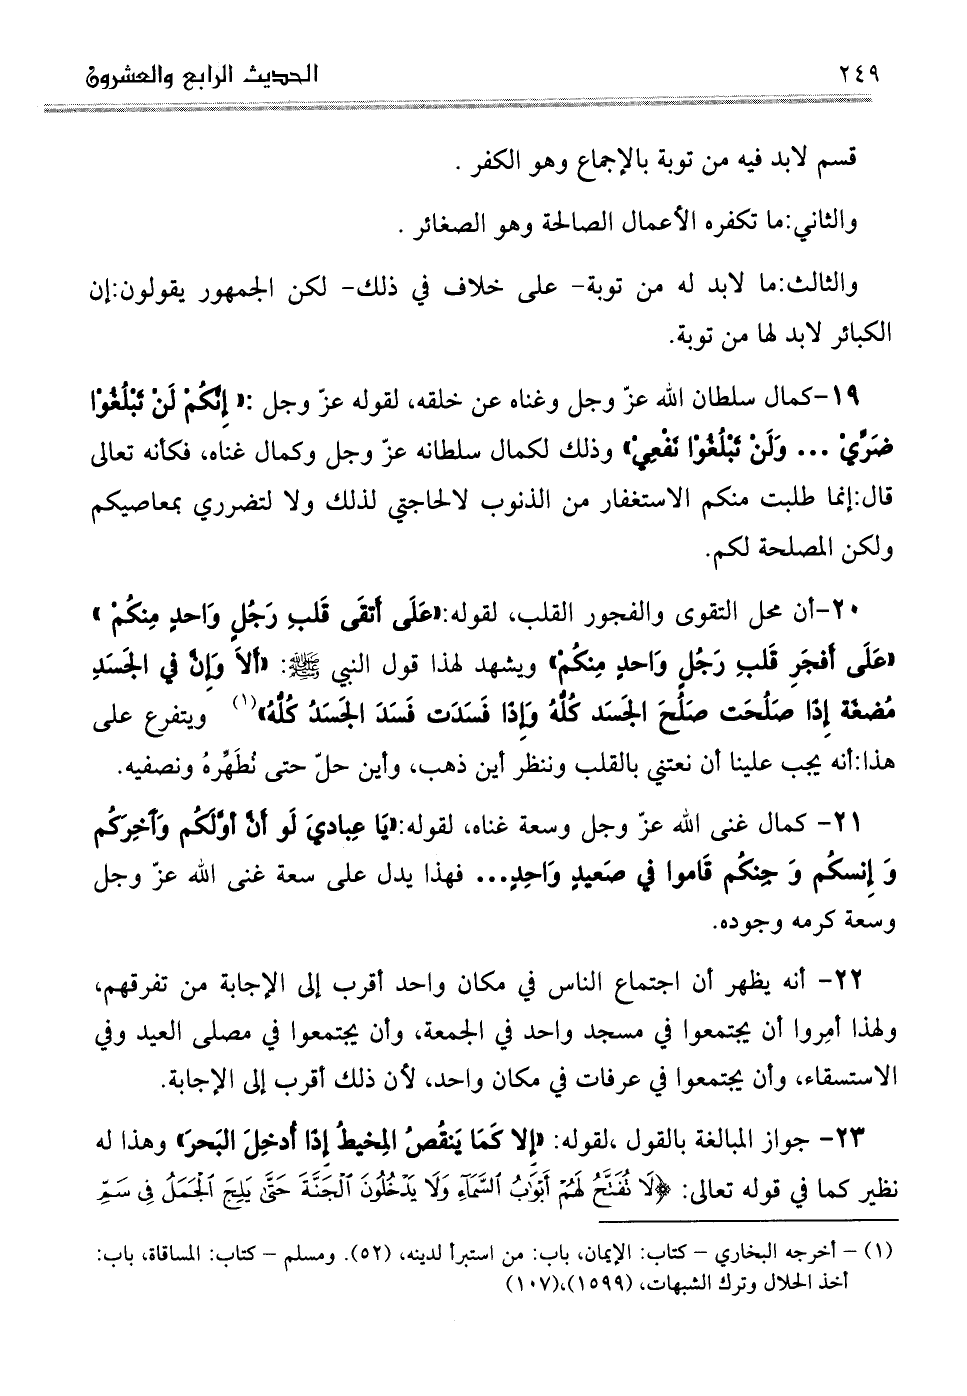 الحديث الرابع والعشرون ٢٤٩
قسم لابد فيه من توبة بالإجماع وهو الكفر .
والثاني:ما تكفره الأعمال الصالحة وهو الصغائر .
والثالث:ما لابد له من توبة- على خلاف في ذلك- لكن الجمهور يقولون:إن
الكبائر لابد لها من توبة.
١٩-كمال سلطان الله عزّ وجل وغناه عن خلقه، لقوله عزّ وجل :« إِنَّكُمْ لَنْ تَبْلُغُوْا
ضَرِّيْ ... وَلَنْ تَبْلُغُوْا نَفْعِيْ» وذلك لكمال سلطانه عزّ وجل وكمال غناه، فكأنه تعالى
قال:إنما طلبت منكم الاستغفار من الذنوب لالحاجتي لذلك ولا لتضرري بمعاصيكم
ولكن المصلحة لكم.
٢٠-أن محل التقوى والفجور القلب، لقوله:«عَلَى أَتقَى قَلبِ رَجُلٍ وَاحدٍ مِنكُمْ »
«عَلَى أَفجَرِ قَلبِ رَجُلٍ وَاحدٍ مِنكُمْ» ويشهد لهذا قول النبي ﷺ: «أَلاَ وَإِنَّ في الجَسَدِ
مُضغَة إِذَا صَلَحَت صَلَحَ الجَسَد كُلُّهُ وَإِذَا فَسَدَت فَسَدَ الجَسَدُ كُلُّهُ»(١) ويتفرع على
هذا:أنه يجب علينا أن نعتني بالقلب وننظر أين ذهب، وأين حلّ حتى نُطَهِّرهُ ونصفيه.
٢١- كمال غنى الله عزّ وجل وسعة غناه، لقوله:«يَا عِبادِيَ لَو أَنَّ أوَّلَكُم وَآخِرَكُم
وَ إِنسكُم وَ جِنكُم قَاموا في صَعيدٍ وَاحِدٍ... فهذا يدل على سعة غنى الله عزّ وجل
وسعة كرمه وجوده.
٢٢- أنه يظهر أن اجتماع الناس في مكان واحد أقرب إلى الإجابة من تفرقهم،
ولهذا أمِروا أن يجتمعوا في مسجد واحد في الجمعة، وأن يجتمعوا في مصلى العيد وفي
الاستسقاء، وأن يجتمعوا في عرفات في مكان واحد، لأن ذلك أقرب إلى الإجابة.
٢٣- جواز المبالغة بالقول ،لقوله: «إِلا كَمَا يَنقُصُ المِخيطُ إِذَا أُدخِلَ البَحرَ» وهذا له
نظير كما في قوله تعالى: ﴿لَا تُفَتَّحُ لَهُمْ أَبْوَٰبُ ٱلسَّمَآءِ وَلَا يَدْخُلُونَ ٱلْجَنَّةَ حَتَّىٰ يَلِجَ ٱلْجَمَلُ فِى سَمِّ
(١) – أخرجه البخاري – كتاب: الإيمان، باب: من استبرأ لدينه، (٥٢). ومسلم – كتاب: المساقاة، باب:
أخذ الحلال وترك الشبهات، (١٥٩٩)،(١٠٧)